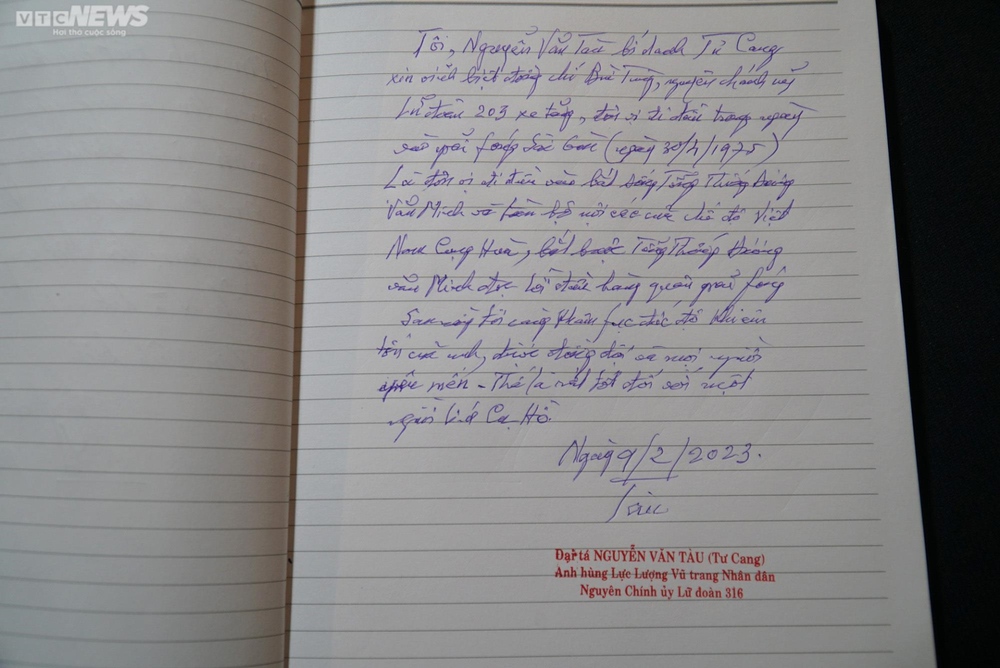 VTC NEWS
Hơi thở cuộc sống
Tôi, Nguyễn Văn Tàu bí danh Tư Cang
xin vĩnh biệt đồng chí Bùi Tùng, nguyên chánh uỷ
Lữ đoàn 203 xe tăng, đơn vị đi đầu trong ngày
vào giải fóng Sài Gòn (ngày 30/4/1975)
Là đơn vị đi đầu vào bắt sống Tổng Thống Dương
Văn Minh và toàn bộ nội các của chế độ Việt
Nam Cộng Hoà, bắt buộc Tổng Thống Dương
văn Minh đọc lời đầu hàng quân giải fóng
tôi càng khâm fục đức độ khiêm
tốn của anh, được đồng đội và mọi người
yêu mến - Thế là rất tốt đối với một
người lính Cụ Hồ
Ngày 9/2/2023.
Đại tá NGUYỄN VĂN TÀU (Tư Cang)
Anh hùng Lực Lượng Vũ trang Nhân dân
Nguyên Chính ủy Lữ đoàn 316